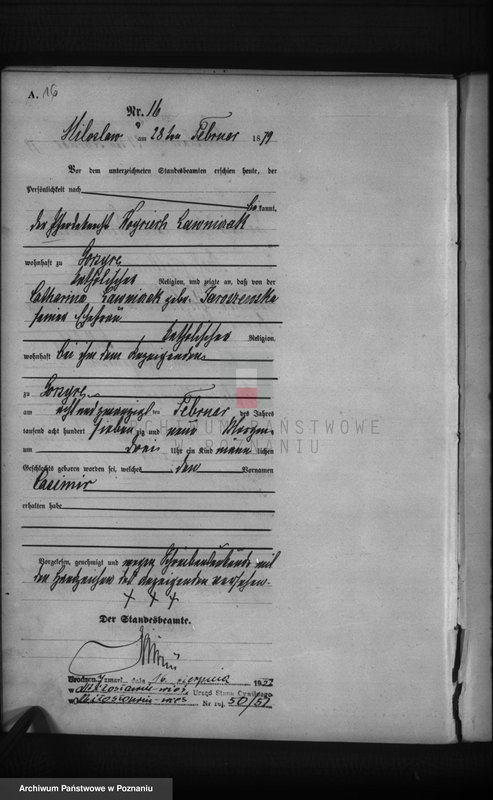 A. 16
Nr. 16
Miloslaw am 28ten Februar 1879
Vor dem unterzeichneten Standesbeamten erschien heute, der
Persönlichkeit nach
bekannt,
der Pferdeknecht Woyciech Lawniczak
wohnhaft zu Gorzyce
katholischer Religion, und zeigte an, daß von der
Catharina Lawniczak geb. Jaroszewska
seiner Ehefrau
katholischer Religion,
wohnhaft bei ihm dem Anzeigenden
zu Gorzyce
am acht und zwanzigsten Februar des Jahres
tausend acht hundert siebenzig und neun Morgens
um drei Uhr ein Kind männlichen
Geschlechts geboren worden sei, welches den Vornamen
Casimir
erhalten habe
Vorgelesen, genehmigt und wegen Schreibensunkunde mit
den Handzeichen des Anzeigenden versehen.
+ + +
Der Standesbeamte.
Zmarł dnia 16 sierpnia 1957
w
Urząd Stanu Cywilnego
w Nr rej. 50/57
ARCHIWUM PAŃSTWOWE
W POZNANIU
Archiwum Państwowe w Poznaniu